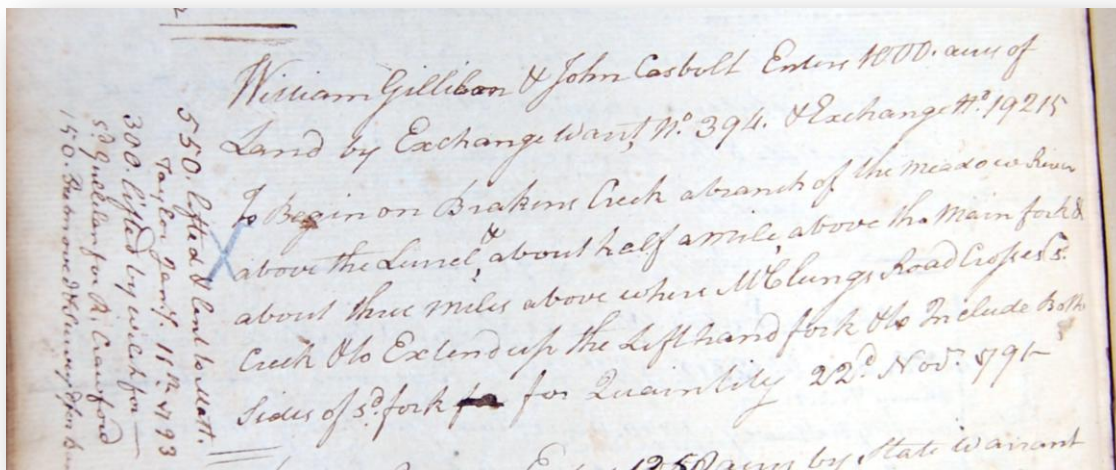 William Gillilan & John Casbolt Enters 1000 acres of
Land by Exchange Warrt, No. 394. & Exchange No. 19215
To Begin on Brakens Creek a branch of the meadow River
above the Laurel & about half a mile above the Main fork &
about three miles above where McClungs Road Crosses sd.
Creek & to Extend up the Left hand fork & to Include Both
Sides of sd. fork for Quaintity 22d. Novr. 1791
acres by State Warrant
550. lifted & land to Matt.
Taylor Jany. 11th. 1793
300. lifted by withd for
sd. Gulillan for R. Crawford
150.